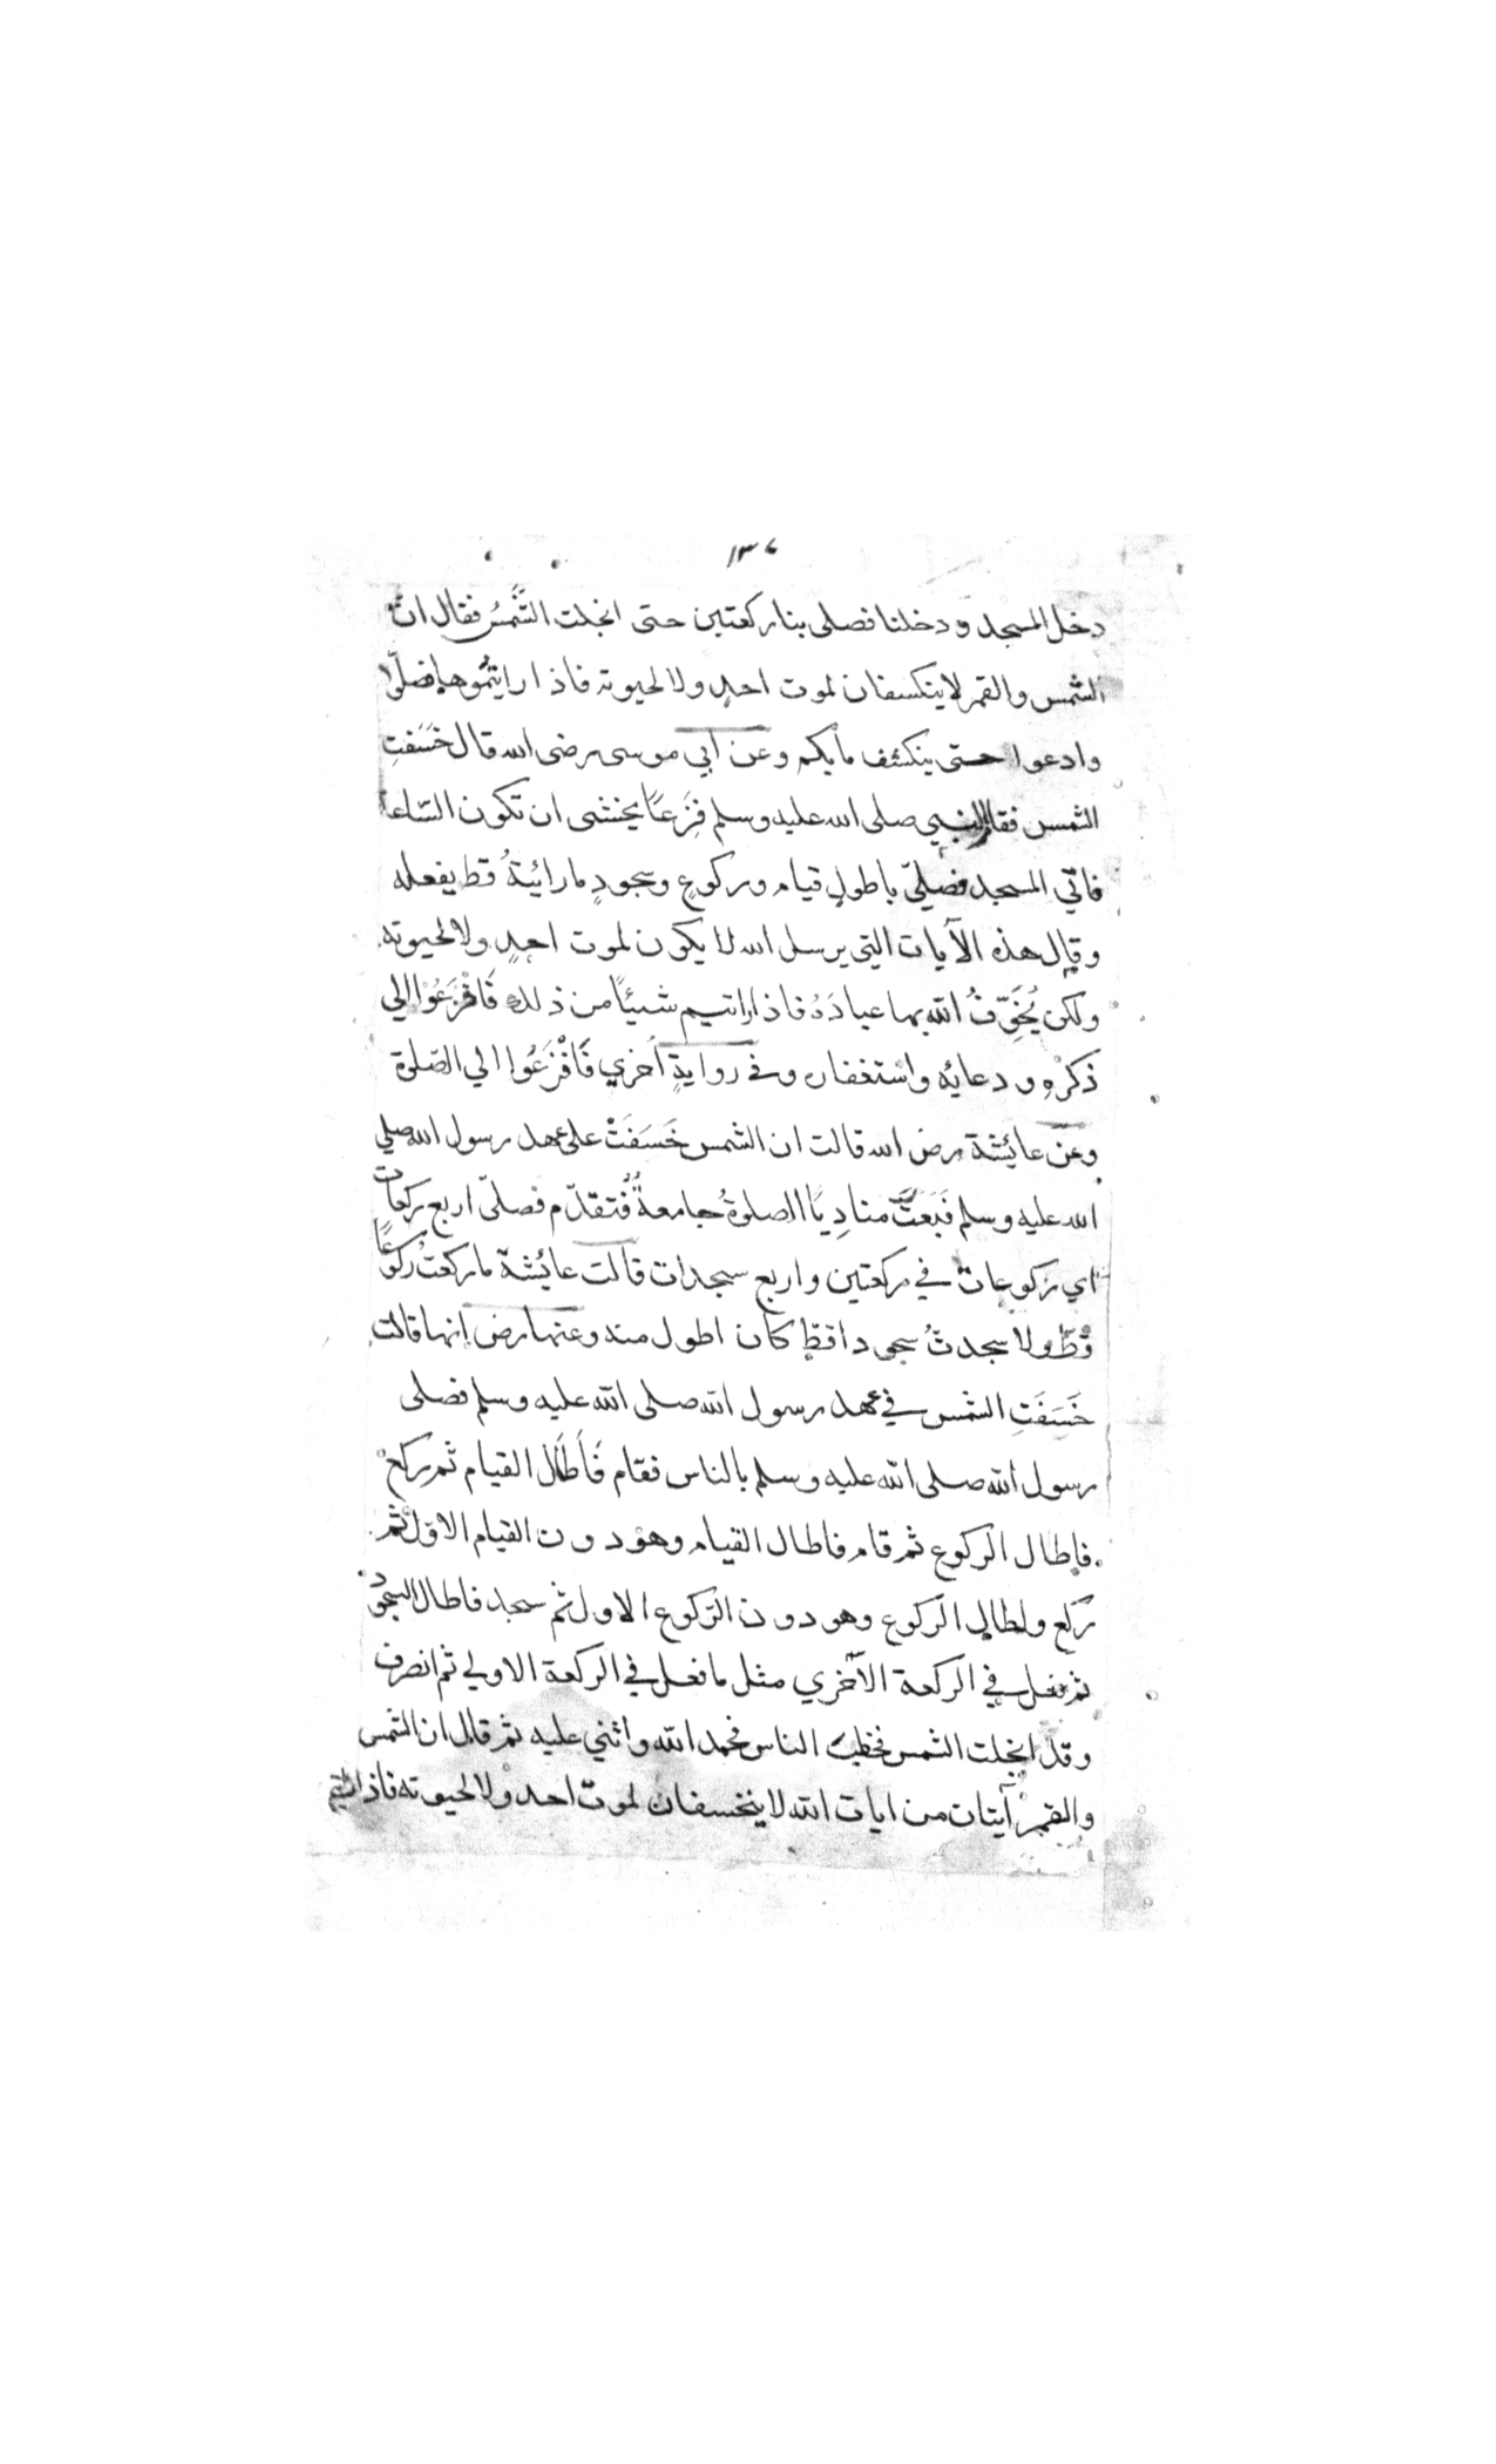 دخل المسجد ودخلنا فصلى بنا ركعتين حتى انجلت الشَّمْسُ فقال انّ
الشمس والقمر لا ينكسفان لموت احدٍ ولا لحيوته فاذا رايتموها فصلّوا
وادعوا حتى ينكشف ما بكم وعن ابي موسى رضى الله قال خَسَفتِ
الشمس فقام النبي صلى الله عليه وسلم فَزِعًا يخشى ان تكون السّاعة
فاتي المسجد فصليّ باطولِ قيام وركوعٍ وسجودٍ ما رائيتهُ قط يفعله
وقال هذه الآيات التي يرسل الله لا يكون لموت احدٍ ولا لحيوته
ولكن يُخَوِّفُ الله بها عبادَهُ فاذا رايتم شيئًا من ذلك فَافْزَعُوا الي
ذكرِهِ ودعائِه واستغفاره وفي روايةٍ اُخري فَافْزَعُوا الي الصّلوة
وعن عائشة رض الله قالت ان الشمس خَسَفَتْ على عهد رسول الله صلي
الله عليه وسلم فَبَعَثَ مناديًا الصلوةُ جامعةٌ فتقدّم فصلّى اربع ركعات
اي ركوعات في ركعتين واربع سجدات قالت عائشة ما ركعتُ ركوعًا
قطّ ولا سجدتُ سجودا قطّ كان اطول منه وعنها رض انها قالت
خَسَفَتِ الشمس في عهد رسول الله صلى الله عليه وسلم فصلى
رسول الله صلى الله عليه وسلم بالناس فقام فَأَطَالَ القيام ثم ركع
فاطال الركوع ثم قام فاطال القيام وهو دون القيام الاوّل ثم
ركع واطال الركوع وهو دون الرّكوع الاول ثم سجد فاطال السجود
ثم فعل في الركعة الآخري مثل ما فعل في الركعة الاولي ثم انصرف
وقد انجلت الشمس فخطب الناس فحمد الله واثني عليه ثم قال ان الشمس
والقمر آيتان من ايات الله لا ينخسفان لموت احد ولا لحيوته فاذا رايتم